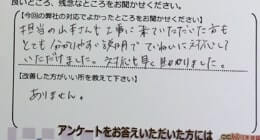 良いところ、残念なところをお聞かせください。
【今回の弊社の対応でよかったところをお聞かせください】
担当の山本さんも工事に来ていただいた方も
とても分かりやすい説明でていねいに対応して
いただけました。対応も早く助かりました。
【改善した方がいい所を教えて下さい】
ありません。
アンケートをお答えいただいた方には